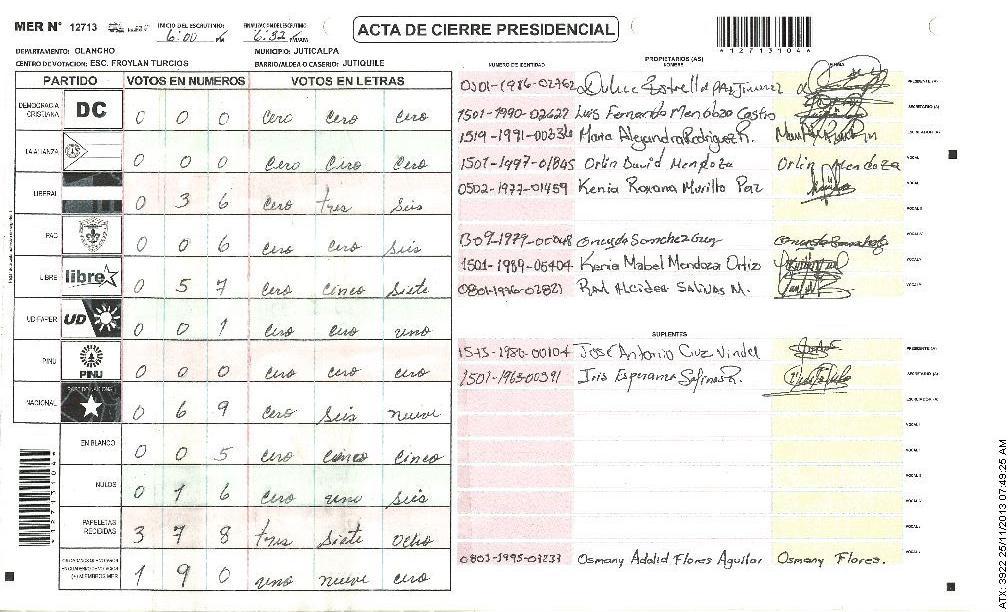 MER N° 12713 INICIO DEL ESCRUTINIO: 6:00 PM FINALIZACION DEL ESCRUTINIO: 6:32 PM/AM
ACTA DE CIERRE PRESIDENCIAL
*12713104*
DEPARTAMENTO: OLANCHO MUNICIPIO: JUTICALPA
CENTRO DE VOTACION: ESC. FROYLAN TURCIOS BARRIO/ALDEA O CASERIO: JUTIQUILE
PARTIDO VOTOS EN NUMEROS VOTOS EN LETRAS
DEMOCRACIA CRISTIANA DC 0 0 0 cero cero cero
LA ALIANZA 0 0 0 cero cero cero
LIBERAL 0 3 6 cero tres seis
PAC 0 0 6 cero cero seis
LIBRE libre 0 5 7 cero cinco siete
UD FAPER UD 0 0 1 cero cero uno
PINU PINU 0 0 0 cero cero cero
NACIONAL 0 6 9 cero seis nueve
EN BLANCO 0 0 5 cero cinco cinco
NULOS 0 1 6 cero uno seis
PAPELETAS RECIBIDAS 3 7 8 tres siete ocho
1 9 0 uno nueve cero
*12713104*
PROPIETARIOS (AS)
NUMERO DE IDENTIDAD NOMBRE FIRMA
0301-1986-02762 Dulce Estrella Paz Jimenez PRESIDENTE (A)
1501-1990-02627 Luis Fernando Mendoza Castro SECRETARIO (A)
1519-1991-00336 Maria Alejandra Rodriguez R. ESCRUTADOR (A)
1501-1997-01845 Orlin David Mendoza Orlin Mendoza VOCAL I
0502-1977-01459 Kenia Roxana Murillo Paz VOCAL
VOCAL
1309-1979-00048 VOCAL
1501-1989-06404 Kenia Mabel Mendoza Ortiz VOCAL
0801-1976-02821 Raul Alcides Salinas M. VOCAL
SUPLENTES
1515-1980-00104 José Antonio Cruz Vindel PRESIDENTE (A)
1501-1963-00391 Iris Esperanza Salinas R. SECRETARIO (A)
ESCRUTADOR (A)
VOCAL
VOCAL
VOCAL
VOCAL
VOCAL
0803-1995-03233 Osmany Adalid Flores Aguilar Osmany Flores. VOCAL
ATX: 3922 25/11/2013 07:49:25 AM